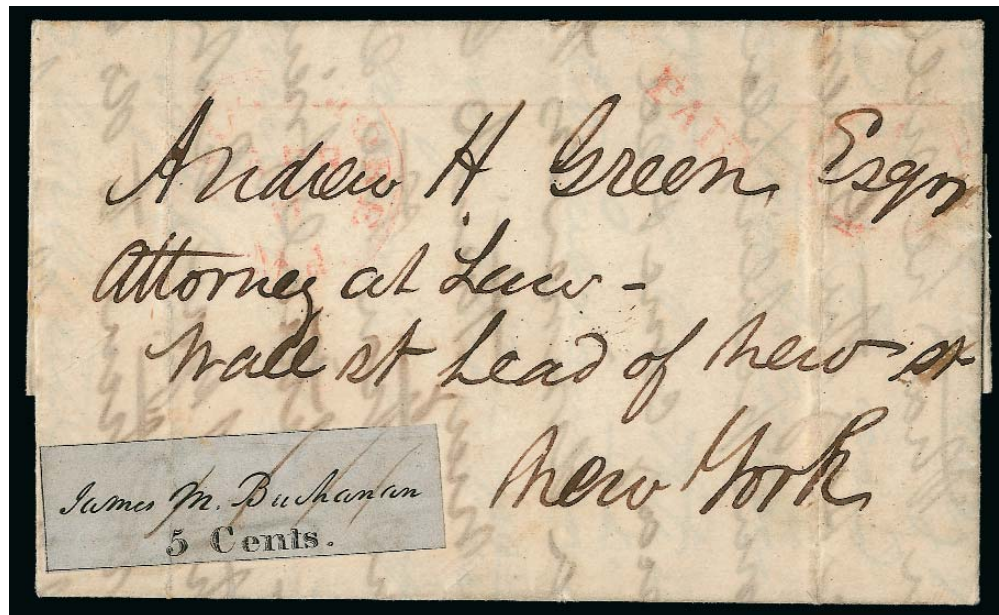 PAID
Andrew H Green Esqr
Attorney at Law -
Wall st head of New st
New York
James M. Buchanan
5 Cents.